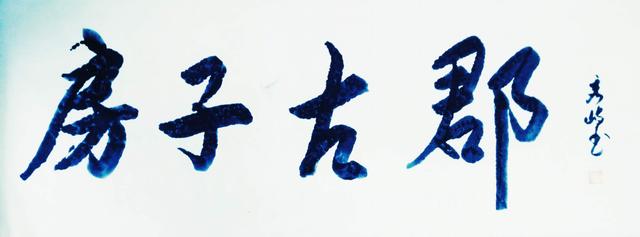 房子古郡